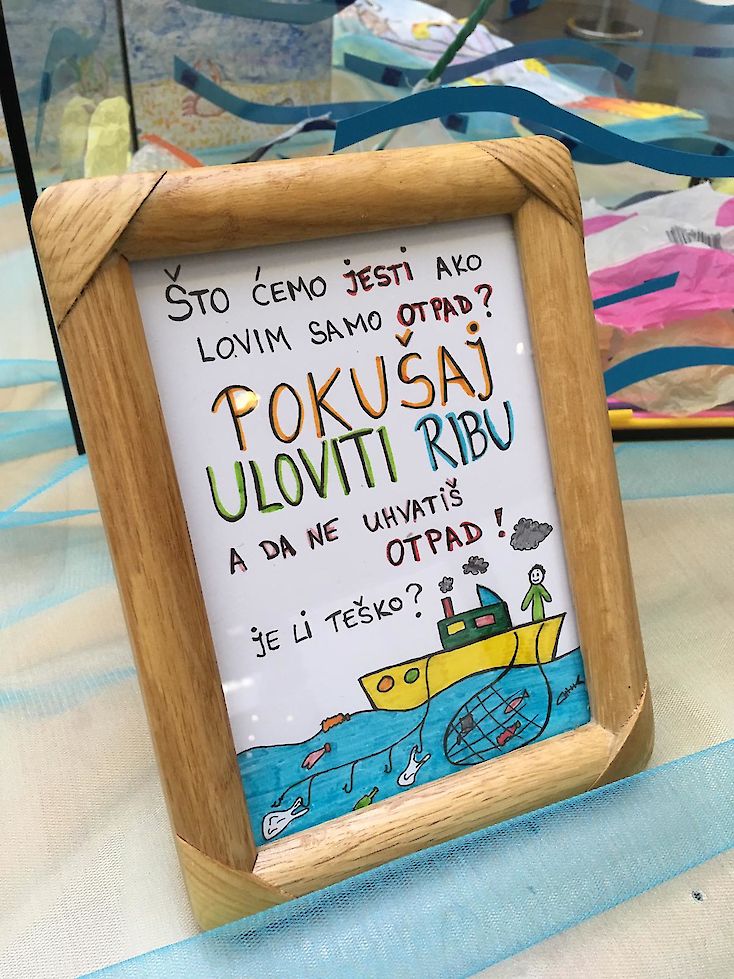 ŠTO ĆEMO JESTI AKO
LOVIM SAMO OTPAD?
POKUŠAJ
ULOVITI RIBU
A DA NE UHVATIŠ
OTPAD!
JE LI TEŠKO?